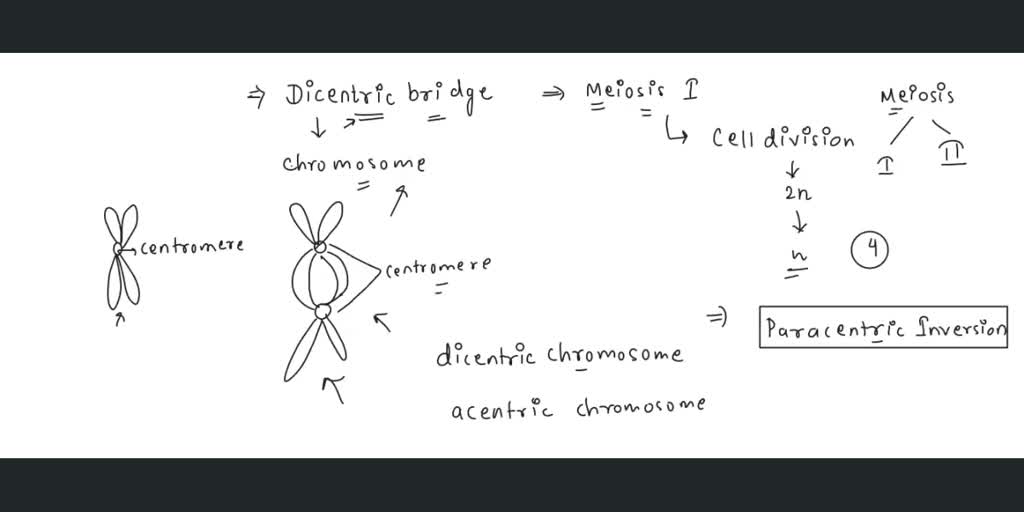 ⇒ Dicentric bridge ⇒ Meiosis I
Meiosis
↓
↳ Cell division
I II
chromosome
↓
2n
↓
n
4
centromere
centromere
⇒ Paracentric Inversion
dicentric chromosome
acentric chromosome